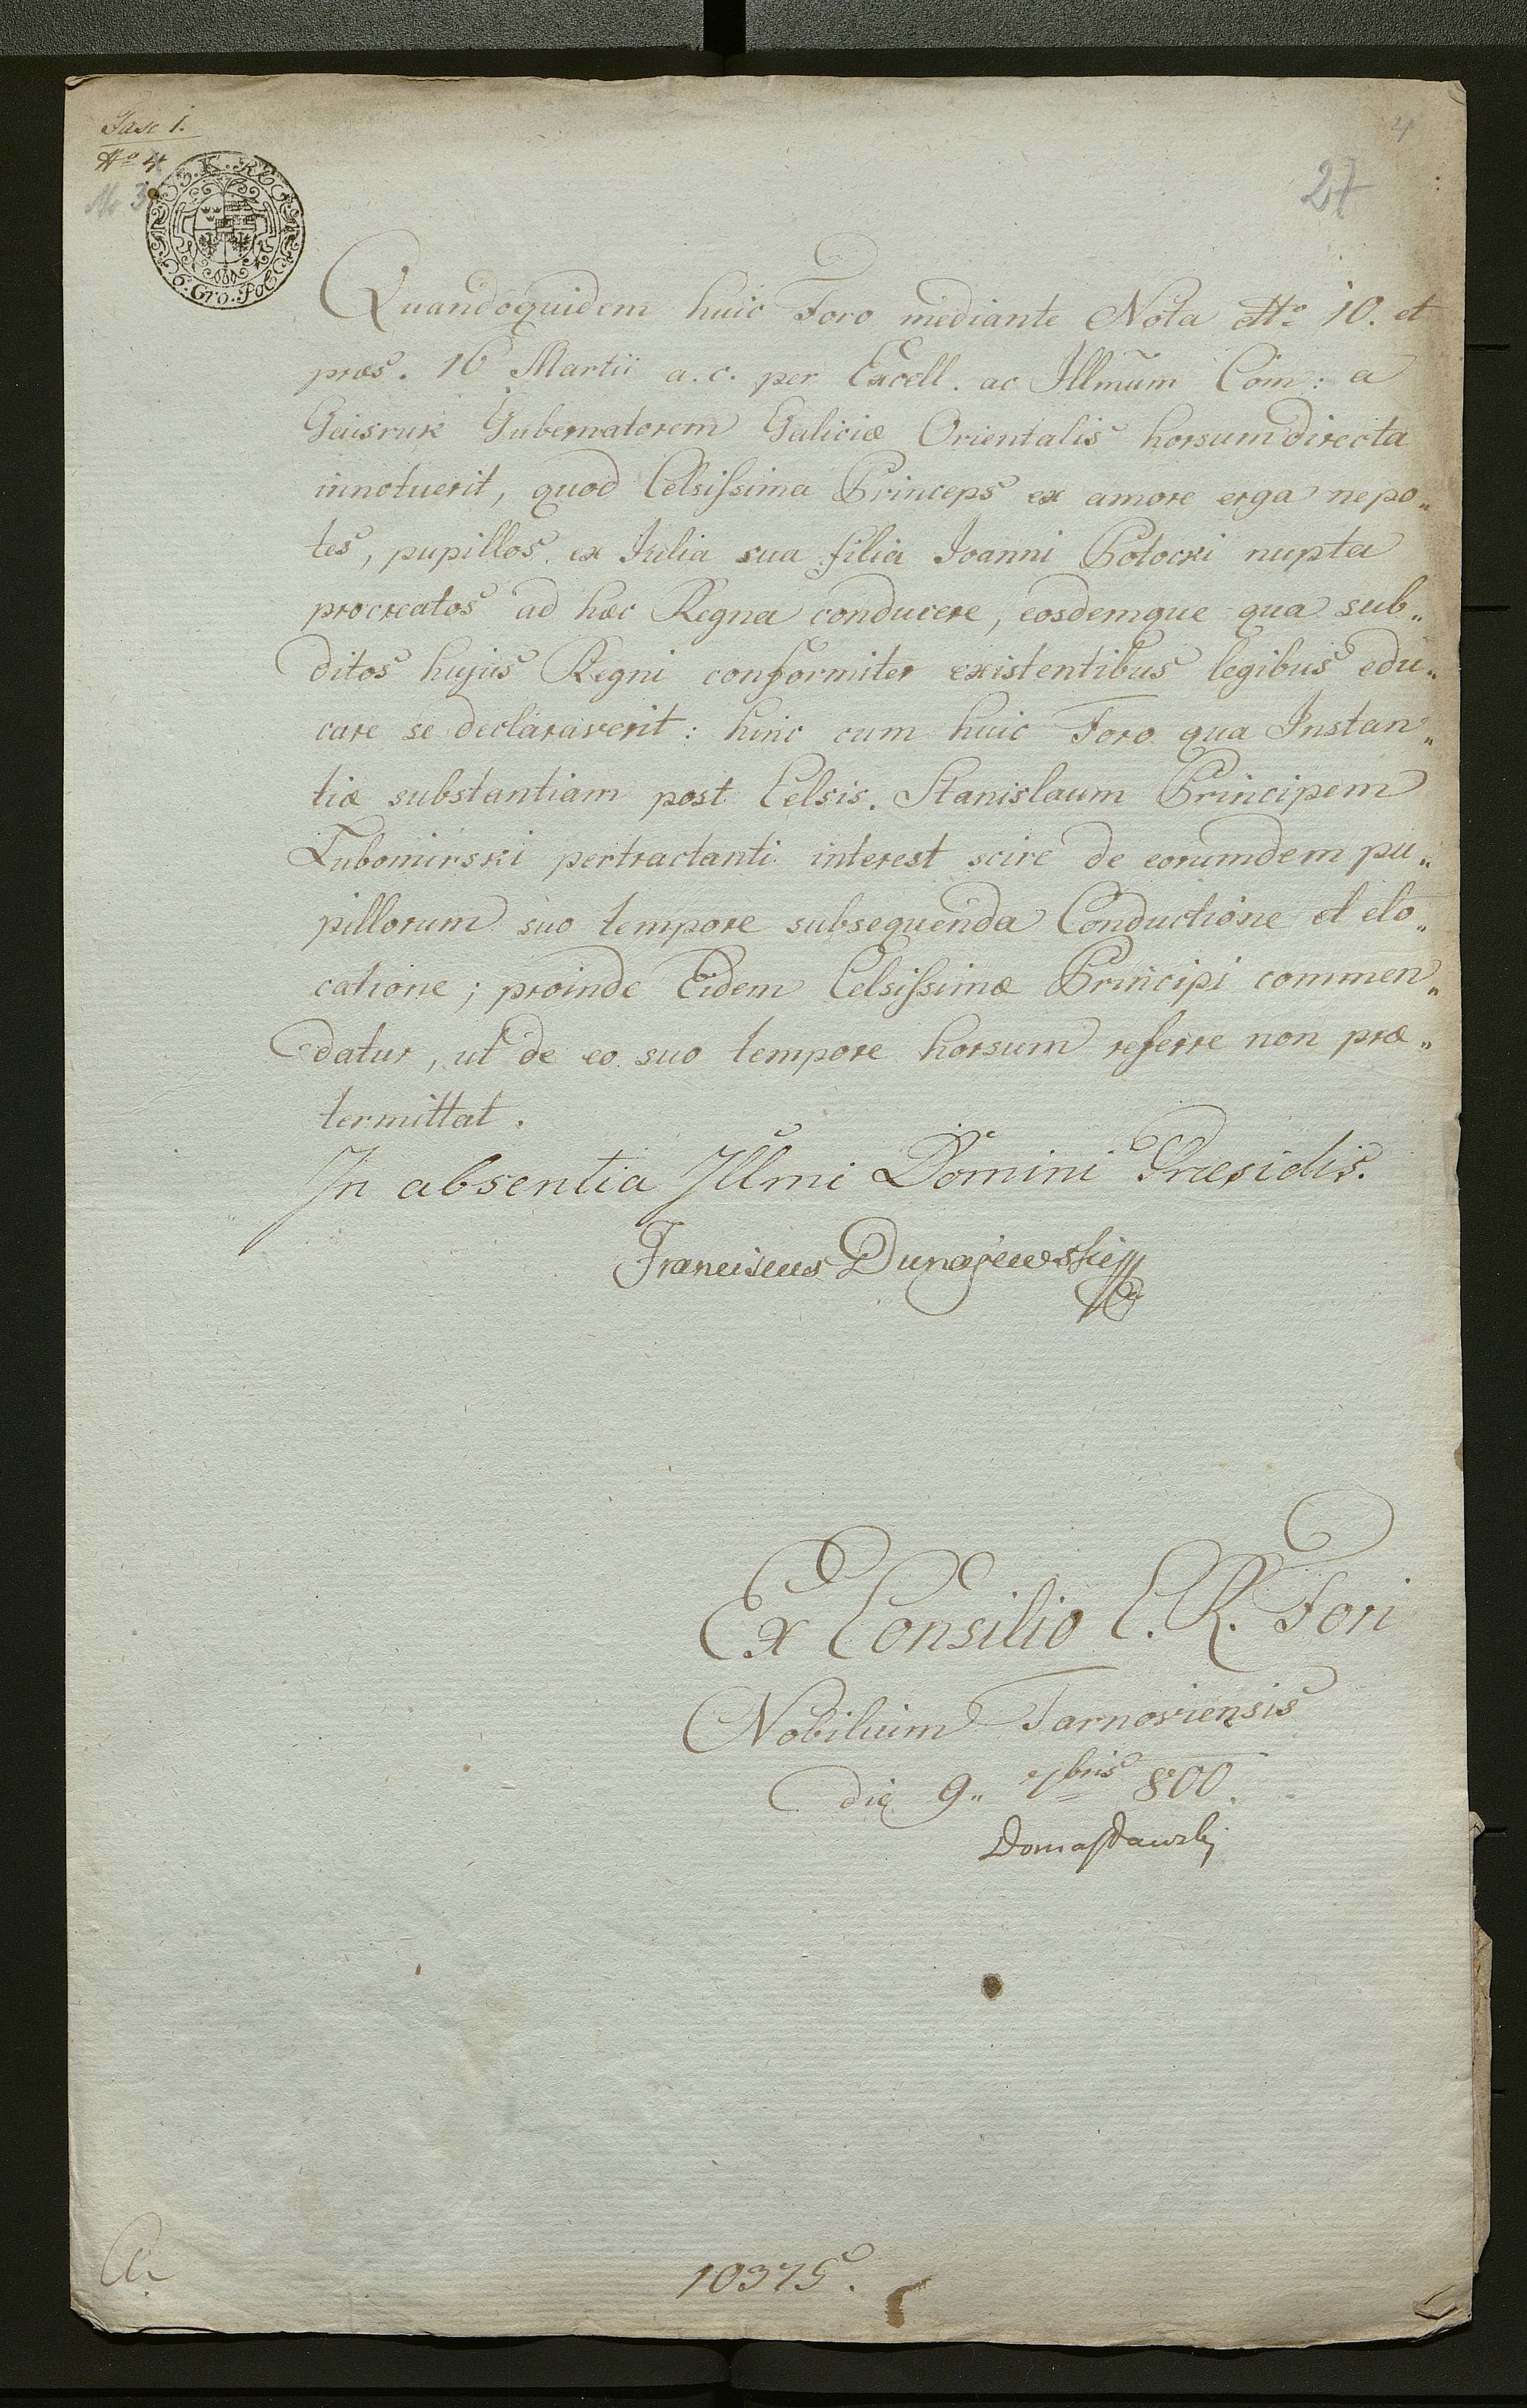 Fasc 1.
No 4
No 3
4
27
K. K.
6. Gro. Pol
Quandoquidem huic Foro mediante Nota No 10. et
præs. 16 Martii a.c. per Excell. ac Illmum Com: a
Gaisruk Gubernatorem Galiciæ Orientalis horsum directa
innotuerit, quod Celsissima Princeps ex amore erga nepo„
tes, pupillos ex Julia sua filia Joanni Potocki nupta
procreatos ad hæc Regna conducere, eosdemque qua sub„
ditos hujus Regni conformiter existentibus legibus edu„
care se declaraverit: hinc cum huic Foro qua Instan„
tiæ substantiam post Celsis. Stanislaum Principem
Lubomirski pertractanti interest scire de eorumdem pu„
pillorum suo tempore subsequenda Conductione et elo„
catione; proinde Eidem Celsissimæ Principi commen„
datur, ut de eo suo tempore horsum referre non præ„
termittat.
In absentia Illmi Domini Præsidis.
Franciscus Dunajewski
Ex Consilio C. R. Fori
Nobilium Tarnoviensis
die 9„ 7bris 800.
10375.